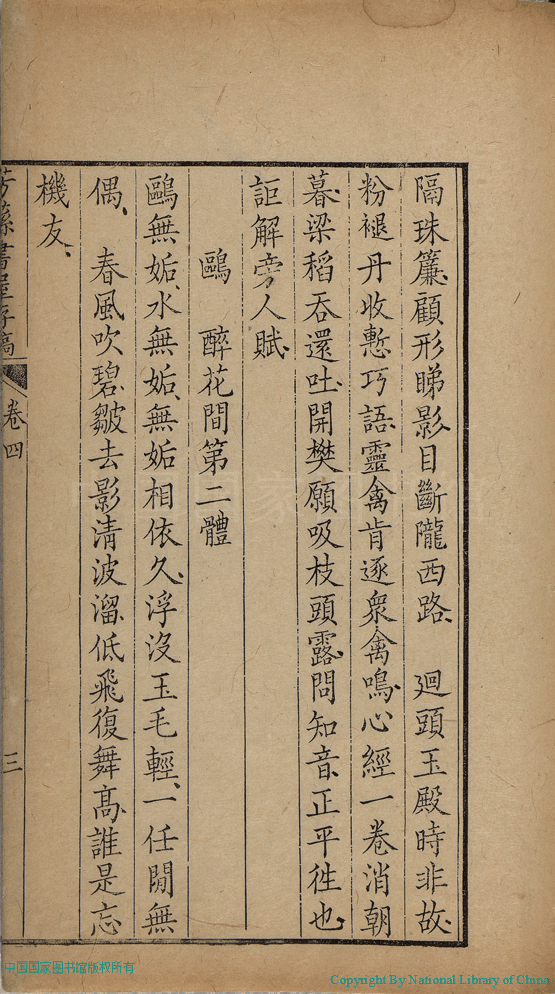 隔珠簾、顧形睇影目斷隴西路、　迴頭玉殿時非故、
粉褪丹收慙巧語、靈禽肯逐衆禽鳴、心經一卷消朝
暮、梁稻吞還吐、開樊願吸枝頭露、問知音、正平徃也、
詎解旁人賦、
鷗　醉花間第二體
鷗無姤、水無姤、無姤相依久、浮沒玉毛輕、一任閒無
偶、　春風吹碧皺去影清波溜、低飛復舞高、誰是忘
機友、
書屋存稿　卷四　三
中国国家图书馆版权所有
Copyright By National Library of China